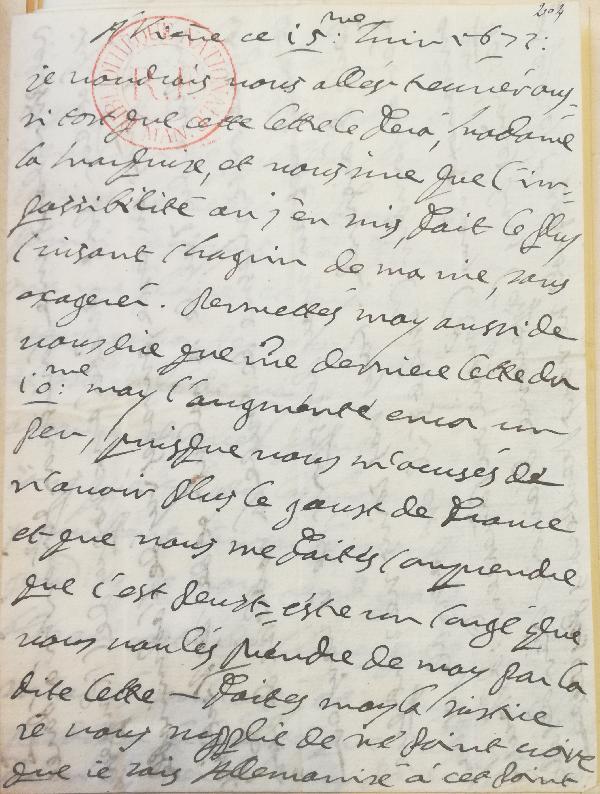 204
A Vienne ce 15:me Juin 1673:
je voudrois vous allés trouvér aus-
si tost que cette lettre le ferá, Madame
la Marquise, et vous jure que l'im-
possibilité ou j'en suis, fait le plus
cuisant chagrin de ma vie, sans
exagerér. Permettés moy aussi de
vous dire que vre derniere lettre du
10:me may l'augmente encor un
peu, puisque vous m'acusés de
n'avoir plus le goust de France
et que vous me faités comprendre
que c'est peust-estre un congé que
vous voulés prendre de moy par la
dite lettre — faites moy la justice
je vous supplie de ne point croire
que je sois Allemanisé à cet point